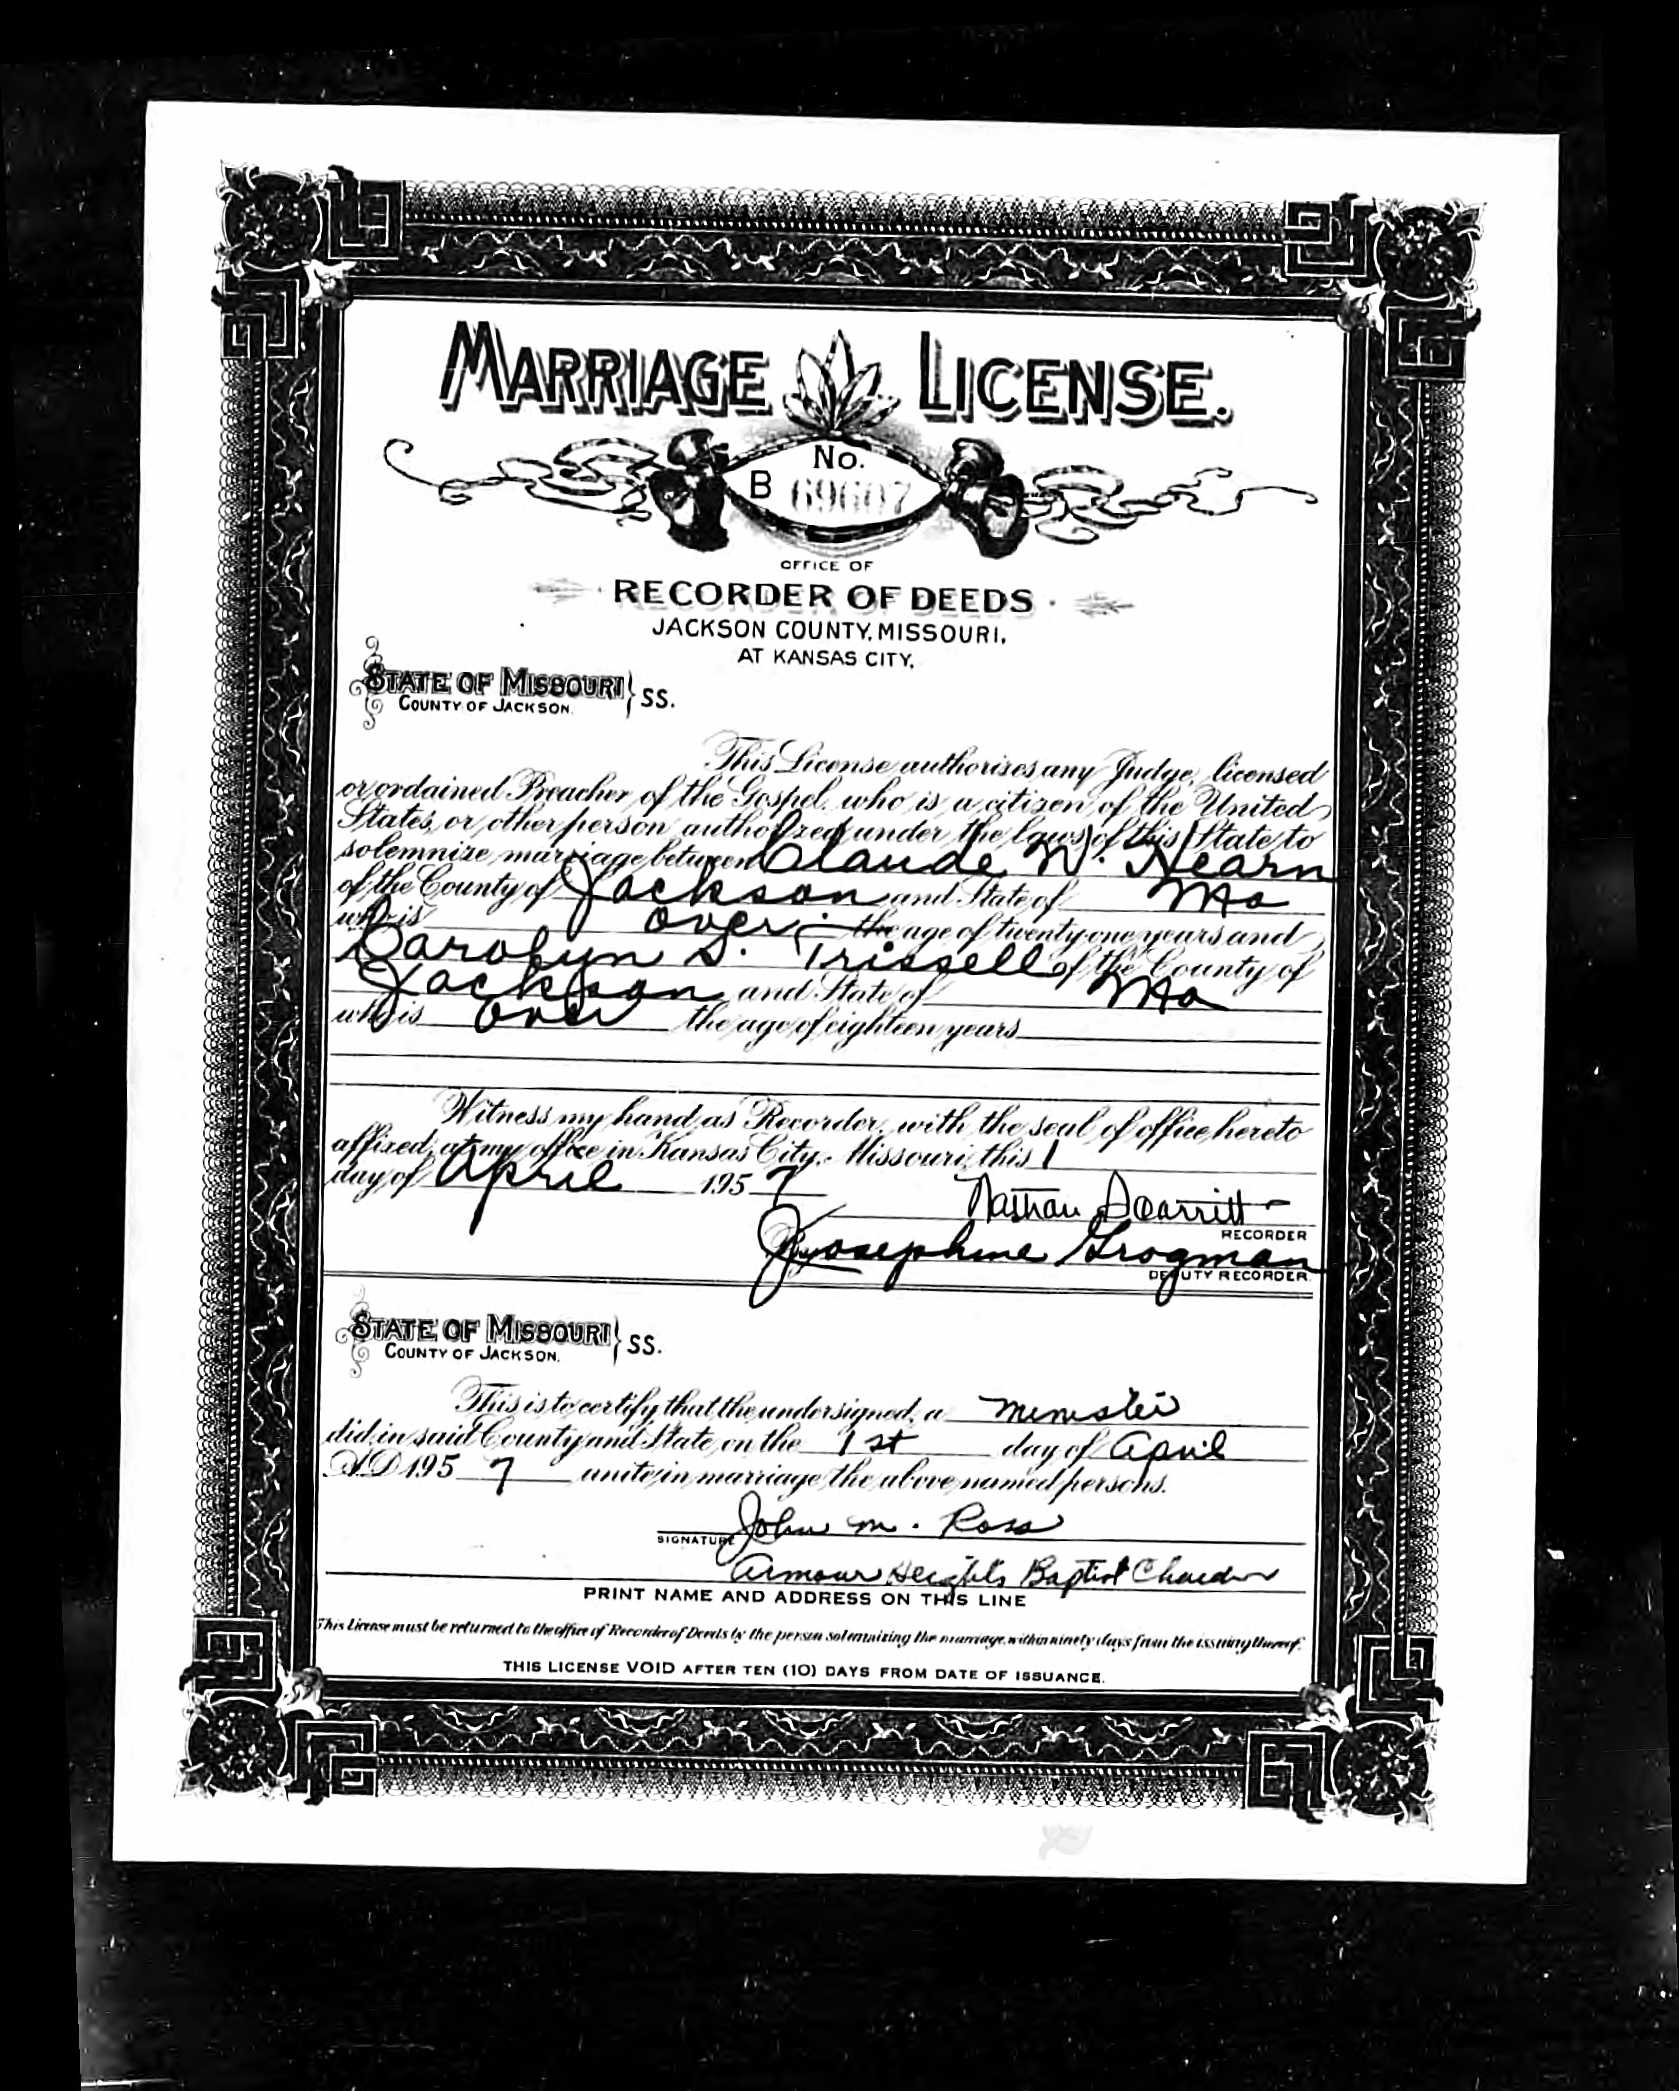 MARRIAGE LICENSE.
No.
B 69607
OFFICE OF
RECORDER OF DEEDS
JACKSON COUNTY, MISSOURI,
AT KANSAS CITY,
STATE OF MISSOURI } SS.
COUNTY OF JACKSON.
This License authorizes any Judge, licensed
or ordained Preacher of the Gospel, who is a citizen of the United
States, or other person authorized under the laws of this State to
solemnize marriage between Claude W. Hearn
of the County of Jackson and State of Mo
who is over the age of twenty one years and
Carolyn S. Trissell of the County of
Jackson and State of Mo
who is over the age of eighteen years
Witness my hand as Recorder, with the seal of office hereto
affixed, at my office in Kansas City, Missouri, this 1
day of April 1957
Nathan Scarritt
RECORDER
By Josephine Grogman
DEPUTY RECORDER.
STATE OF MISSOURI } SS.
COUNTY OF JACKSON.
This is to certify that the undersigned, a Minister
did in said County and State, on the 1st day of April
A.D. 195 7 unite in marriage the above named persons.
SIGNATURE John M. Ross
Armour Heights Baptist Church
PRINT NAME AND ADDRESS ON THIS LINE
This License must be returned to the office of Recorder of Deeds by the person solemnizing the marriage, within ninety days from the issuing thereof.
THIS LICENSE VOID AFTER TEN (10) DAYS FROM DATE OF ISSUANCE.